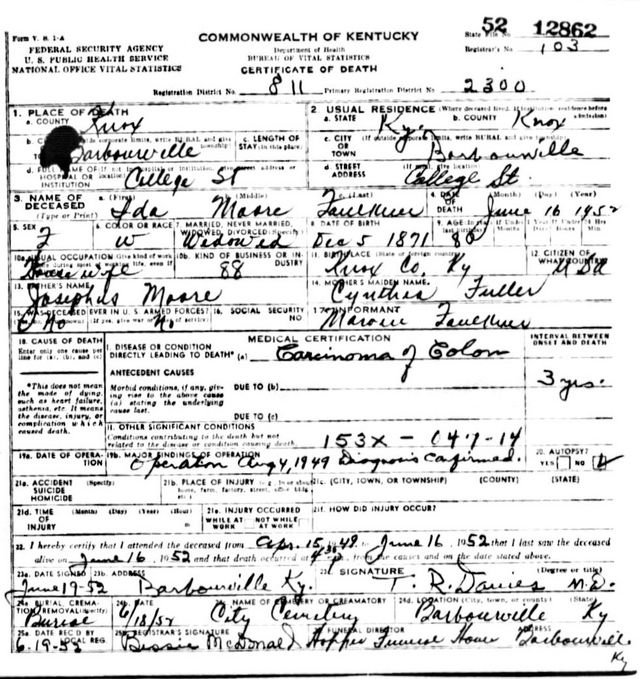 Form V. S. 1-A
COMMONWEALTH OF KENTUCKY
State File No. 52 12862
FEDERAL SECURITY AGENCY
Department of Health
Registrar's No. 103
U. S. PUBLIC HEALTH SERVICE
BUREAU OF VITAL STATISTICS
NATIONAL OFFICE VITAL STATISTICS
CERTIFICATE OF DEATH
Registration District No. 811 Primary Registration District No. 2300
1. PLACE OF DEATH
2. USUAL RESIDENCE (Where deceased lived. If institution, residence before admission)
a. COUNTY Knox
a. STATE Ky. b. COUNTY Knox
Barbourville
c. LENGTH OF STAY (in this place)
c. CITY OR TOWN Barbourville
d. FULL NAME OF HOSPITAL OR INSTITUTION College St
d. STREET ADDRESS College St.
3. NAME OF DECEASED (Type or Print)
a. (First) Ida (Middle) Moore c. (Last) Faulkner
4. DATE OF DEATH (Month) (Day) (Year) June 16 1952
5. SEX F
6. COLOR OR RACE W
7. MARRIED, NEVER MARRIED, WIDOWED, DIVORCED (Specify) Widowed
8. DATE OF BIRTH Dec 5 1871
9. AGE 80
10a. USUAL OCCUPATION Housewife
10b. KIND OF BUSINESS OR INDUSTRY 88
11. BIRTHPLACE (State or foreign country) Knox Co. Ky
12. CITIZEN OF WHAT COUNTRY?
13. FATHER'S NAME Josephus Moore
14. MOTHER'S MAIDEN NAME Cynthia Fuller
15. WAS DECEASED EVER IN U. S. ARMED FORCES? No
16. SOCIAL SECURITY NO.
17. INFORMANT Faulkner
18. CAUSE OF DEATH
Enter only one cause per line for (a), (b), and (c)
MEDICAL CERTIFICATION
INTERVAL BETWEEN ONSET AND DEATH
I. DISEASE OR CONDITION DIRECTLY LEADING TO DEATH* (a) Carcinoma of Colon
3 yrs.
*This does not mean the mode of dying, such as heart failure, asthenia, etc. It means the disease, injury, or complication which caused death.
ANTECEDENT CAUSES
Morbid conditions, if any, giving rise to the above cause (a) stating the underlying cause last.
DUE TO (b)
DUE TO (c)
II. OTHER SIGNIFICANT CONDITIONS
Conditions contributing to the death but not related to the disease or condition causing death.
153X - 047-14
19a. DATE OF OPERATION
19b. MAJOR FINDINGS OF OPERATION
Operation Aug 4, 1949 Diagnosis Confirmed.
20. AUTOPSY? YES NO
21a. ACCIDENT SUICIDE HOMICIDE
21b. PLACE OF INJURY (e.g., in or about home, farm, factory, street, office bldg., etc.)
21c. (CITY, TOWN, OR TOWNSHIP) (COUNTY) (STATE)
21d. TIME OF INJURY (Month) (Day) (Year) (Hour) m
21e. INJURY OCCURRED WHILE AT WORK NOT WHILE AT WORK
21f. HOW DID INJURY OCCUR?
22. I hereby certify that I attended the deceased from Apr. 15, 1949 to June 16, 1952 that I last saw the deceased
alive on June 16, 1952 and that death occurred at 4:30 p. m., from the causes and on the date stated above.
23a. DATE SIGNED June 19-52
23b. ADDRESS Barbourville Ky.
23c. SIGNATURE (Degree or title) T. R. Davies M.D.
24a. BURIAL, CREMATION, REMOVAL (Specify) Burial
24b. DATE 6/18/52
24c. NAME OF CEMETERY OR CREMATORY City Cemetery
24d. LOCATION (City, town, or county) (State) Barbourville Ky
25a. DATE REC'D BY LOCAL REG. 6-19-52
25b. REGISTRAR'S SIGNATURE Bessie McDonald
FUNERAL DIRECTOR Hopper Funeral Home
ADDRESS Barbourville Ky